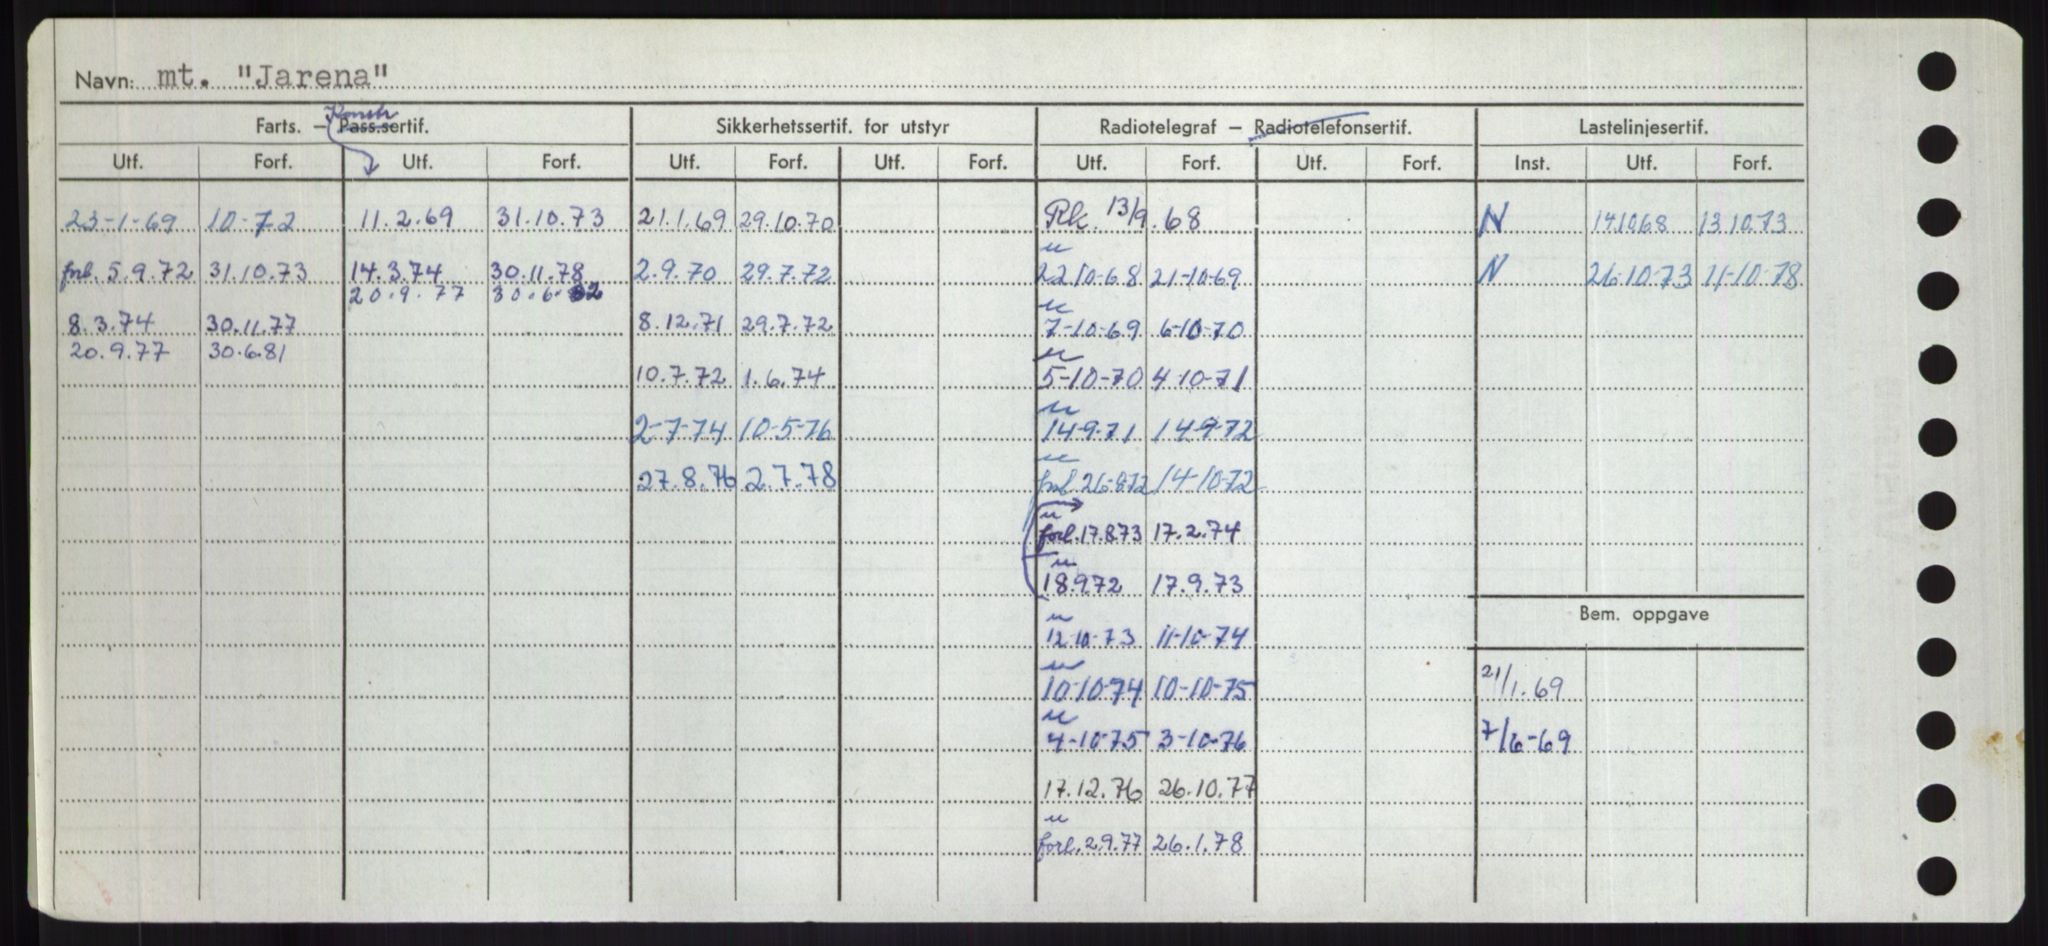 Navn: mt. "Jarena"
Konstr
Farts. – Pass.sertif. Sikkerhetssertif. for utstyr Radiotelegraf – Radiotelefonsertif. Lastelinjesertif.
Utf. Forf. Utf. Forf. Utf. Forf. Utf. Forf. Utf. Forf. Utf. Forf. Inst. Utf. Forf.
23-1-69 10-72 11.2.69 31.10.73 21.1.69 29.10.70 Rk. 13/9.68 N 14.10.68 13.10.73
forl. 5.9.72 31.10.73 14.3.74 30.11.78 2.9.70 29.7.72 " 22.10-68 21-10-69 N 26.10.73 11-10-78
20.9.77 30.6.82
8.3.74 30.11.77 8.12.71 29.7.72 " 7-10-69 6-10-70
20.9.77 30.6.81
10.7.72 1.6.74 " 5-10-70 4-10-71
2-7-74 10-5-76 " 14-9-71 14-9-72
27.8.76 2.7.78 " forl 26-8-72 14-10-72
" forl. 17.8.73 17.2.74
" 18.9.72 17.9.73
" 12-10-73 11-10-74
Bem. oppgave
" 10-10-74 10-10-75 21/1.69
" 4-10-75 3-10-76 7/6-69
17.12.76 26.10.77
" forl. 2.9.77 26.1.78